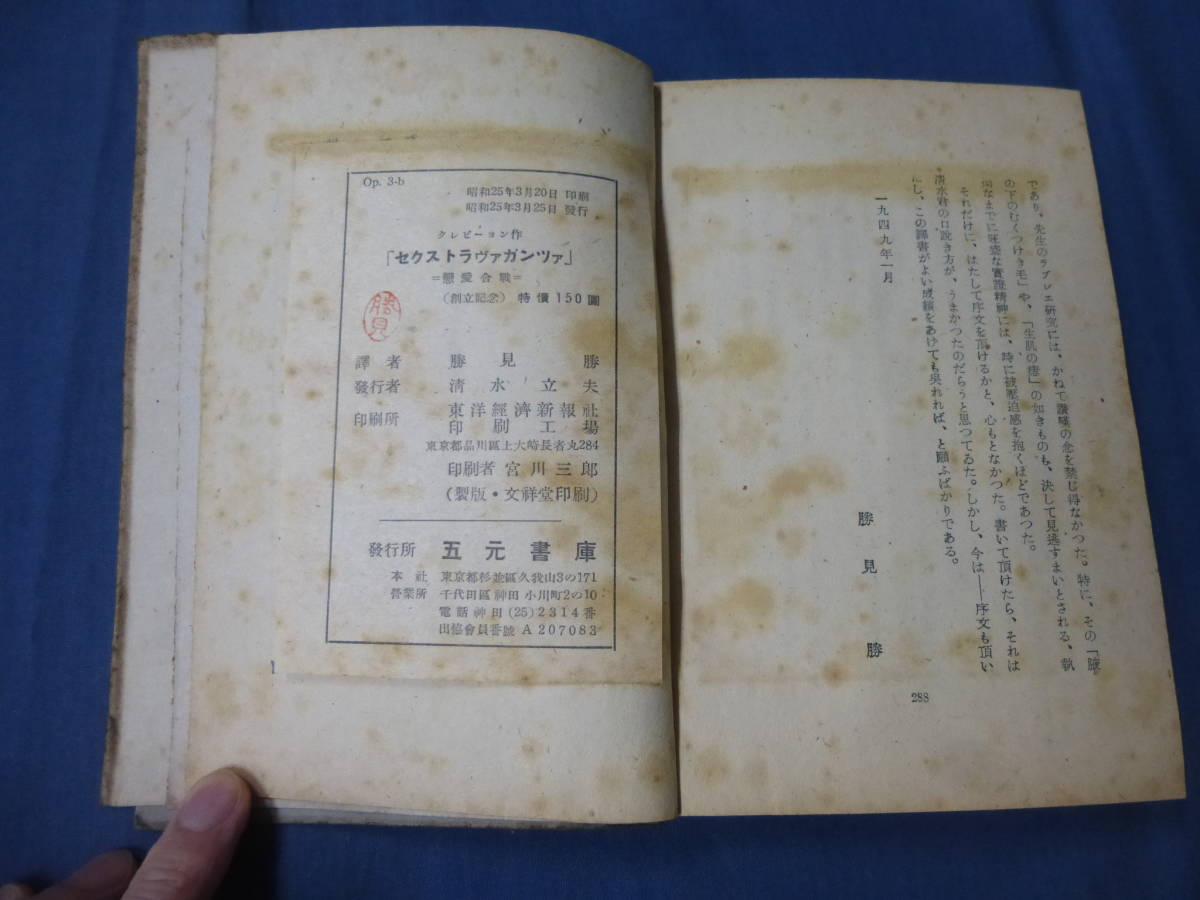 であり、先生のラブレエ研究には、かねて讃嘆の念を禁じ得なかつた。特に、その「腋
の下のむくつけき毛」や、「生肌の瘡」の如きものも、決して見逃すまいとされる、執
拗なまでに旺盛な實證精神には、時に被壓迫感を抱くほどであつた。
それだけに、はたして序文を頂けるかと、心もとなかつた。書いて頂けたら、それは
清水君の口說き方が、うまかつたのだらうと思つてゐた。しかし、今は――序文も頂い
たし、この譯書がよい成績をあけても吳れれば、と願ふばかりである。
一九四九年一月
勝見勝
288
Op. 3-b
昭和25年3月20日 印刷
昭和25年3月25日 發行
クレビーヨン作
「セクストラヴァガンツァ」
=戀愛合戰=
(創立記念) 特價150圓
勝見
譯者 勝見勝
發行者 清水立夫
印刷所 東洋經濟新報社
印刷工場
東京都品川區上大崎長者丸284
印刷者 宮川三郎
(製版・文祥堂印刷)
發行所 五元書庫
本社 東京都杉並區久我山3の171
營業所 千代田區神田小川町2の10
電話神田(25)2314番
出協會員番號 A 207083